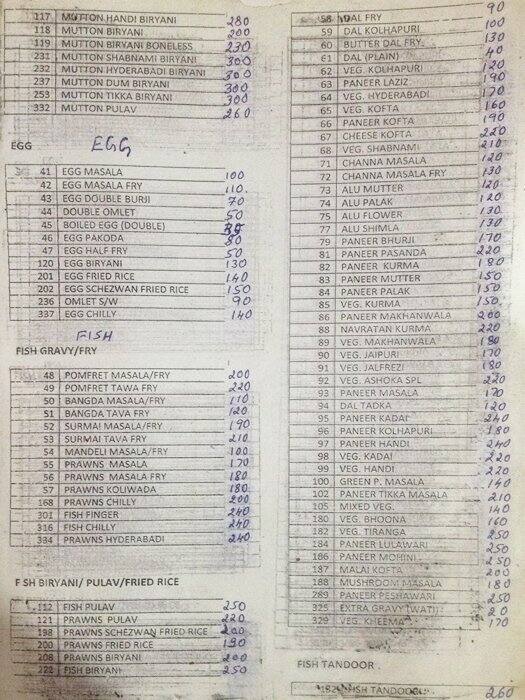 117 MUTTON HANDI BIRYANI 280
118 MUTTON BIRYANI 200
119 MUTTON BIRYANI BONELESS 230
231 MUTTON SHABNAMI BIRYANI 300
232 MUTTON HYDERABADI BIRYANI 300
237 MUTTON DUM BIRYANI 300
253 MUTTON TIKKA BIRYANI 300
332 MUTTON PULAV 260
EGG EGG
41 EGG MASALA 100
42 EGG MASALA FRY 110
43 EGG DOUBLE BURJI 70
44 DOUBLE OMLET 50
45 BOILED EGG (DOUBLE)
46 EGG PAKODA 80
47 EGG HALF FRY 50
120 EGG BIRYANI 130
201 EGG FRIED RICE 140
202 EGG SCHEZWAN FRIED RICE 150
236 OMLET S/W 90
337 EGG CHILLY 140
FISH
FISH GRAVY/FRY
48 POMFRET MASALA/FRY 200
49 POMFRET TAWA FRY 220
50 BANGDA MASALA/FRY 110
51 BANGDA TAVA FRY 120
52 SURMAI MASALA/FRY 190
53 SURMAI TAVA FRY 210
54 MANDELI MASALA/FRY 100
55 PRAWNS MASALA 170
56 PRAWNS MASALA FRY 180
57 PRAWNS KOLIWADA 180
168 PRAWNS CHILLY 200
301 FISH FINGER 240
316 FISH CHILLY 240
334 PRAWNS HYDERABADI 240
F SH BIRYANI/ PULAV/FRIED RICE
112 FISH PULAV 250
121 PRAWNS PULAV 220
198 PRAWNS SCHEZWAN FRIED RICE 200
200 PRAWNS FRIED RICE 190
208 PRAWNS BIRYANI 200
222 FISH BIRYANI 250
58 DAL FRY 90
59 DAL KOLHAPURI 100
60 BUTTER DAL FRY 130
61 DAL (PLAIN) 40
62 VEG. KOLHAPURI 120
63 PANEER LAZIZ 190
64 VEG. HYDERABADI 170
65 VEG. KOFTA 160
66 PANEER KOFTA 190
67 CHEESE KOFTA 220
68 VEG. SHABNAMI 210
71 CHANNA MASALA 120
72 CHANNA MASALA FRY 130
73 ALU MUTTER 120
74 ALU PALAK 120
75 ALU FLOWER 130
77 ALU SHIMLA 130
79 PANEER BHURJI 170
81 PANEER PASANDA 220
82 PANEER KURMA 180
83 PANEER MUTTER 150
84 PANEER PALAK 150
85 VEG. KURMA 150
86 PANEER MAKHANWALA 200
88 NAVRATAN KURMA 220
89 VEG. MAKHANWALA 180
90 VEG. JAIPURI 170
91 VEG. JALFREZI 180
92 VEG. ASHOKA SPL 220
93 PANEER MASALA 170
94 DAL TADKA 120
95 PANEER KADAI 240
96 PANEER KOLHAPURI 180
97 PANEER HANDI 240
98 VEG. KADAI 220
99 VEG. HANDI 220
100 GREEN P. MASALA 140
102 PANEER TIKKA MASALA 210
105 MIXED VEG. 140
180 VEG. BHOONA 160
182 VEG. TIRANGA 250
184 PANEER LULAWARI 250
186 PANEER MOHINI 250
187 MALAI KOFTA 200
188 MUSHROOM MASALA 180
289 PANEER PESHAWARI 250
325 EXTRA GRAVY (WATI) 20
329 VEG. KHEEMA 170
FISH TANDOOR
182 FISH TANDOORI 260